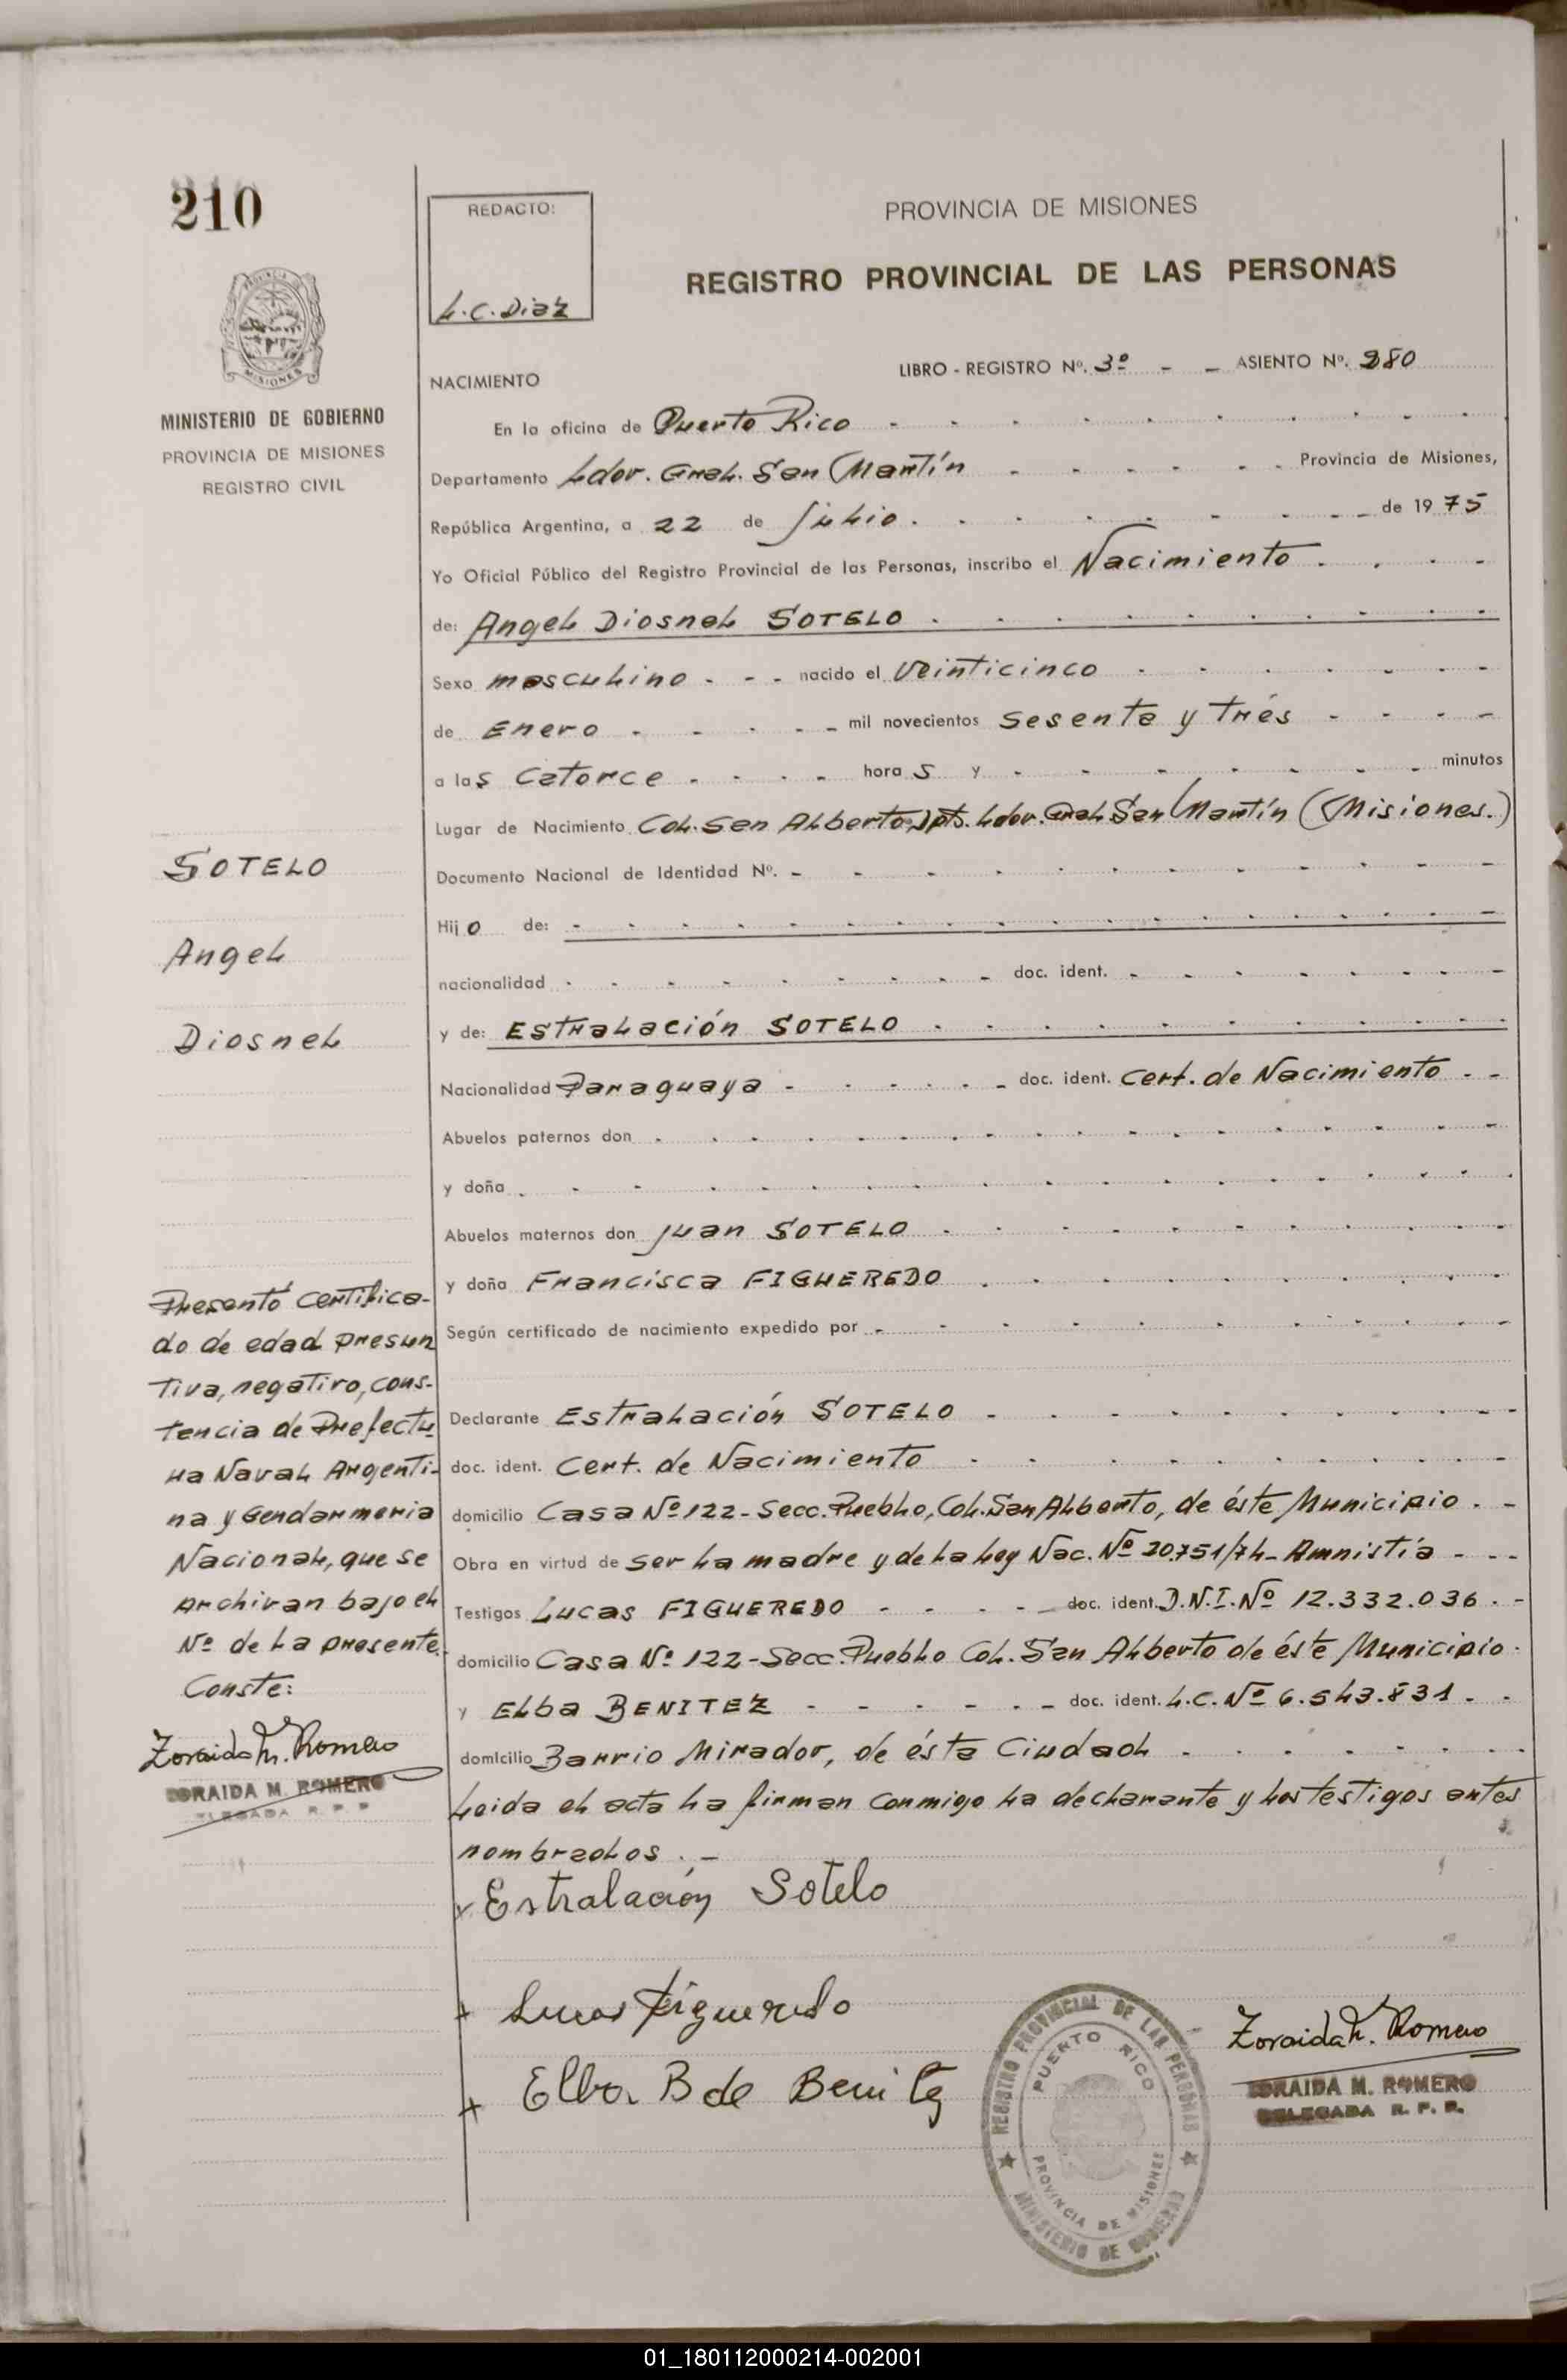 210
REDACTO:
L.C. Diaz
PROVINCIA DE MISIONES
REGISTRO PROVINCIAL DE LAS PERSONAS
MISIONES
MINISTERIO DE GOBIERNO
PROVINCIA DE MISIONES
REGISTRO CIVIL
NACIMIENTO
LIBRO - REGISTRO Nº. 3º - - ASIENTO Nº. 280
En la oficina de Puerto Rico
Departamento Ldor. Gral. San Martín - - - - - - Provincia de Misiones,
República Argentina, a 22 de Julio. - - - - - - de 19 75
Yo Oficial Público del Registro Provincial de las Personas, inscribo el Nacimiento
de: Angel Diosnel SOTELO
Sexo masculino - - - nacido el veinticinco
de Enero - - - - - mil novecientos sesenta y trés
a las catorce - - - - hora s y - - - - - - - minutos
Lugar de Nacimiento Col. San Alberto, Dpto. Ldor. Gral. San Martín (Misiones.)
Documento Nacional de Identidad Nº. -
Hij o de: -
nacionalidad - - - - - - - - doc. ident. -
y de: Estralación SOTELO
Nacionalidad Paraguaya - - - - - doc. ident. Cert. de Nacimiento - -
Abuelos paternos don
y doña
Abuelos maternos don Juan SOTELO
y doña Francisca FIGUEREDO
Según certificado de nacimiento expedido por -
Declarante Estralación SOTELO
doc. ident. Cert. de Nacimiento
domicilio Casa Nº 122 - Secc. Pueblo, Col. San Alberto, de éste Municipio. -
Obra en virtud de ser la madre y de la Ley Nac. Nº 20.751/74 - Amnistía - - -
Testigos Lucas FIGUEREDO - - - - - doc. ident. D.N.I. Nº 12.332.036. -
domicilio Casa Nº 122 - Secc. Pueblo Col. San Alberto de éste Municipio.
y Elba BENITEZ - - - - - - doc. ident. L.C. Nº 6.543.831. -
domicilio Barrio Mirador, de ésta Ciudad
Leida el acta la firman conmigo la declarante y los testigos antes
nombrados. -
SOTELO
Angel
Diosnel
Presentó certifica-
do de edad presun
tiva, negativo, cons-
tencia de Prefectu-
ra Naval Argenti-
na y Gendarmeria
Nacional, que se
archivan bajo el
Nº de la presente.
Conste:
Zoraida M. Romero
ZORAIDA M. ROMERO
DELEGADA R. P. P.
x Estralación Sotelo
x Lucas Figueredo
x Elba B de Benitez
REGISTRO PROVINCIAL DE LAS PERSONAS
PUERTO RICO
PROVINCIA DE MISIONES
MINISTERIO DE GOBIERNO
Zoraida M. Romero
ZORAIDA M. ROMERO
DELEGADA R. P. P.
01_180112000214-002001